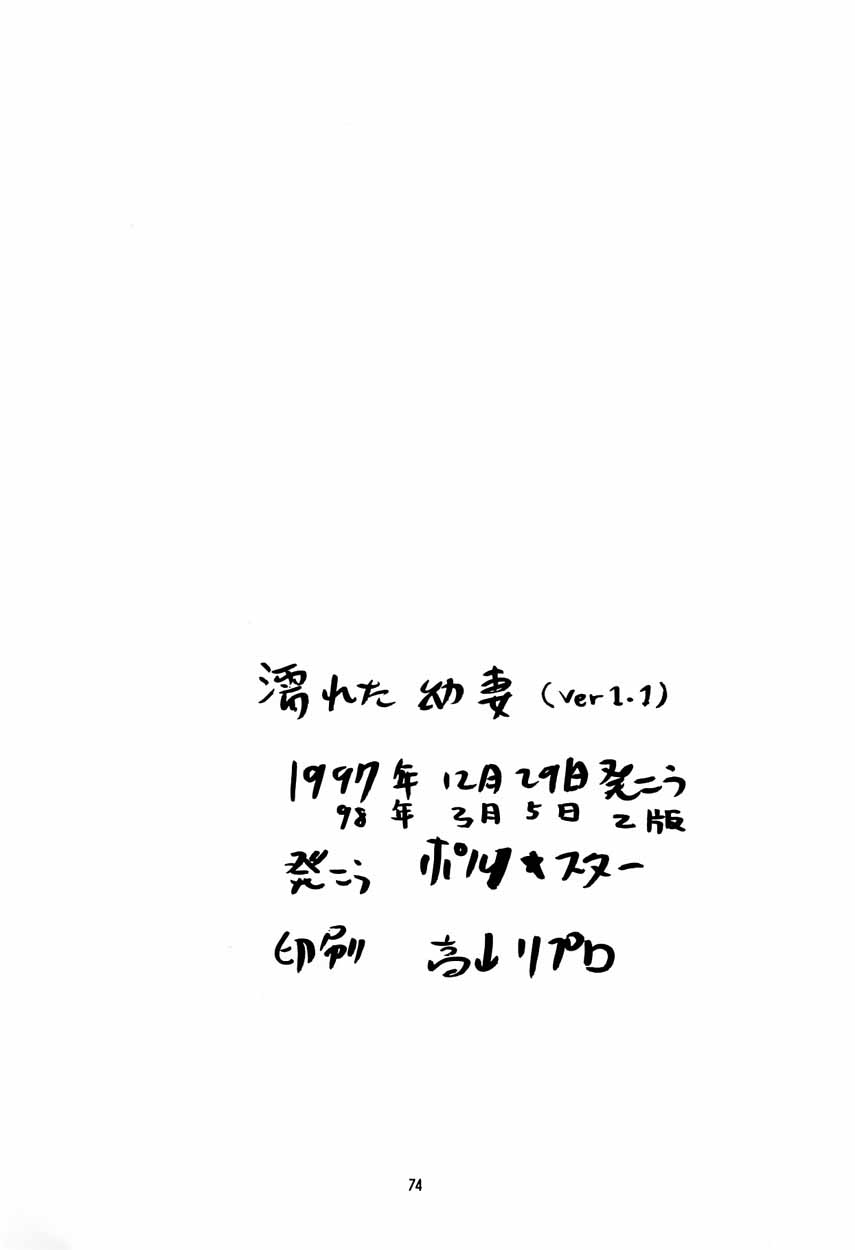 濡れた 幼妻 (ver1.1)
1997年 12月29日発こう
98年 3月5日 2版
発こう ポルノ★スター
印刷 高山リプロ
74